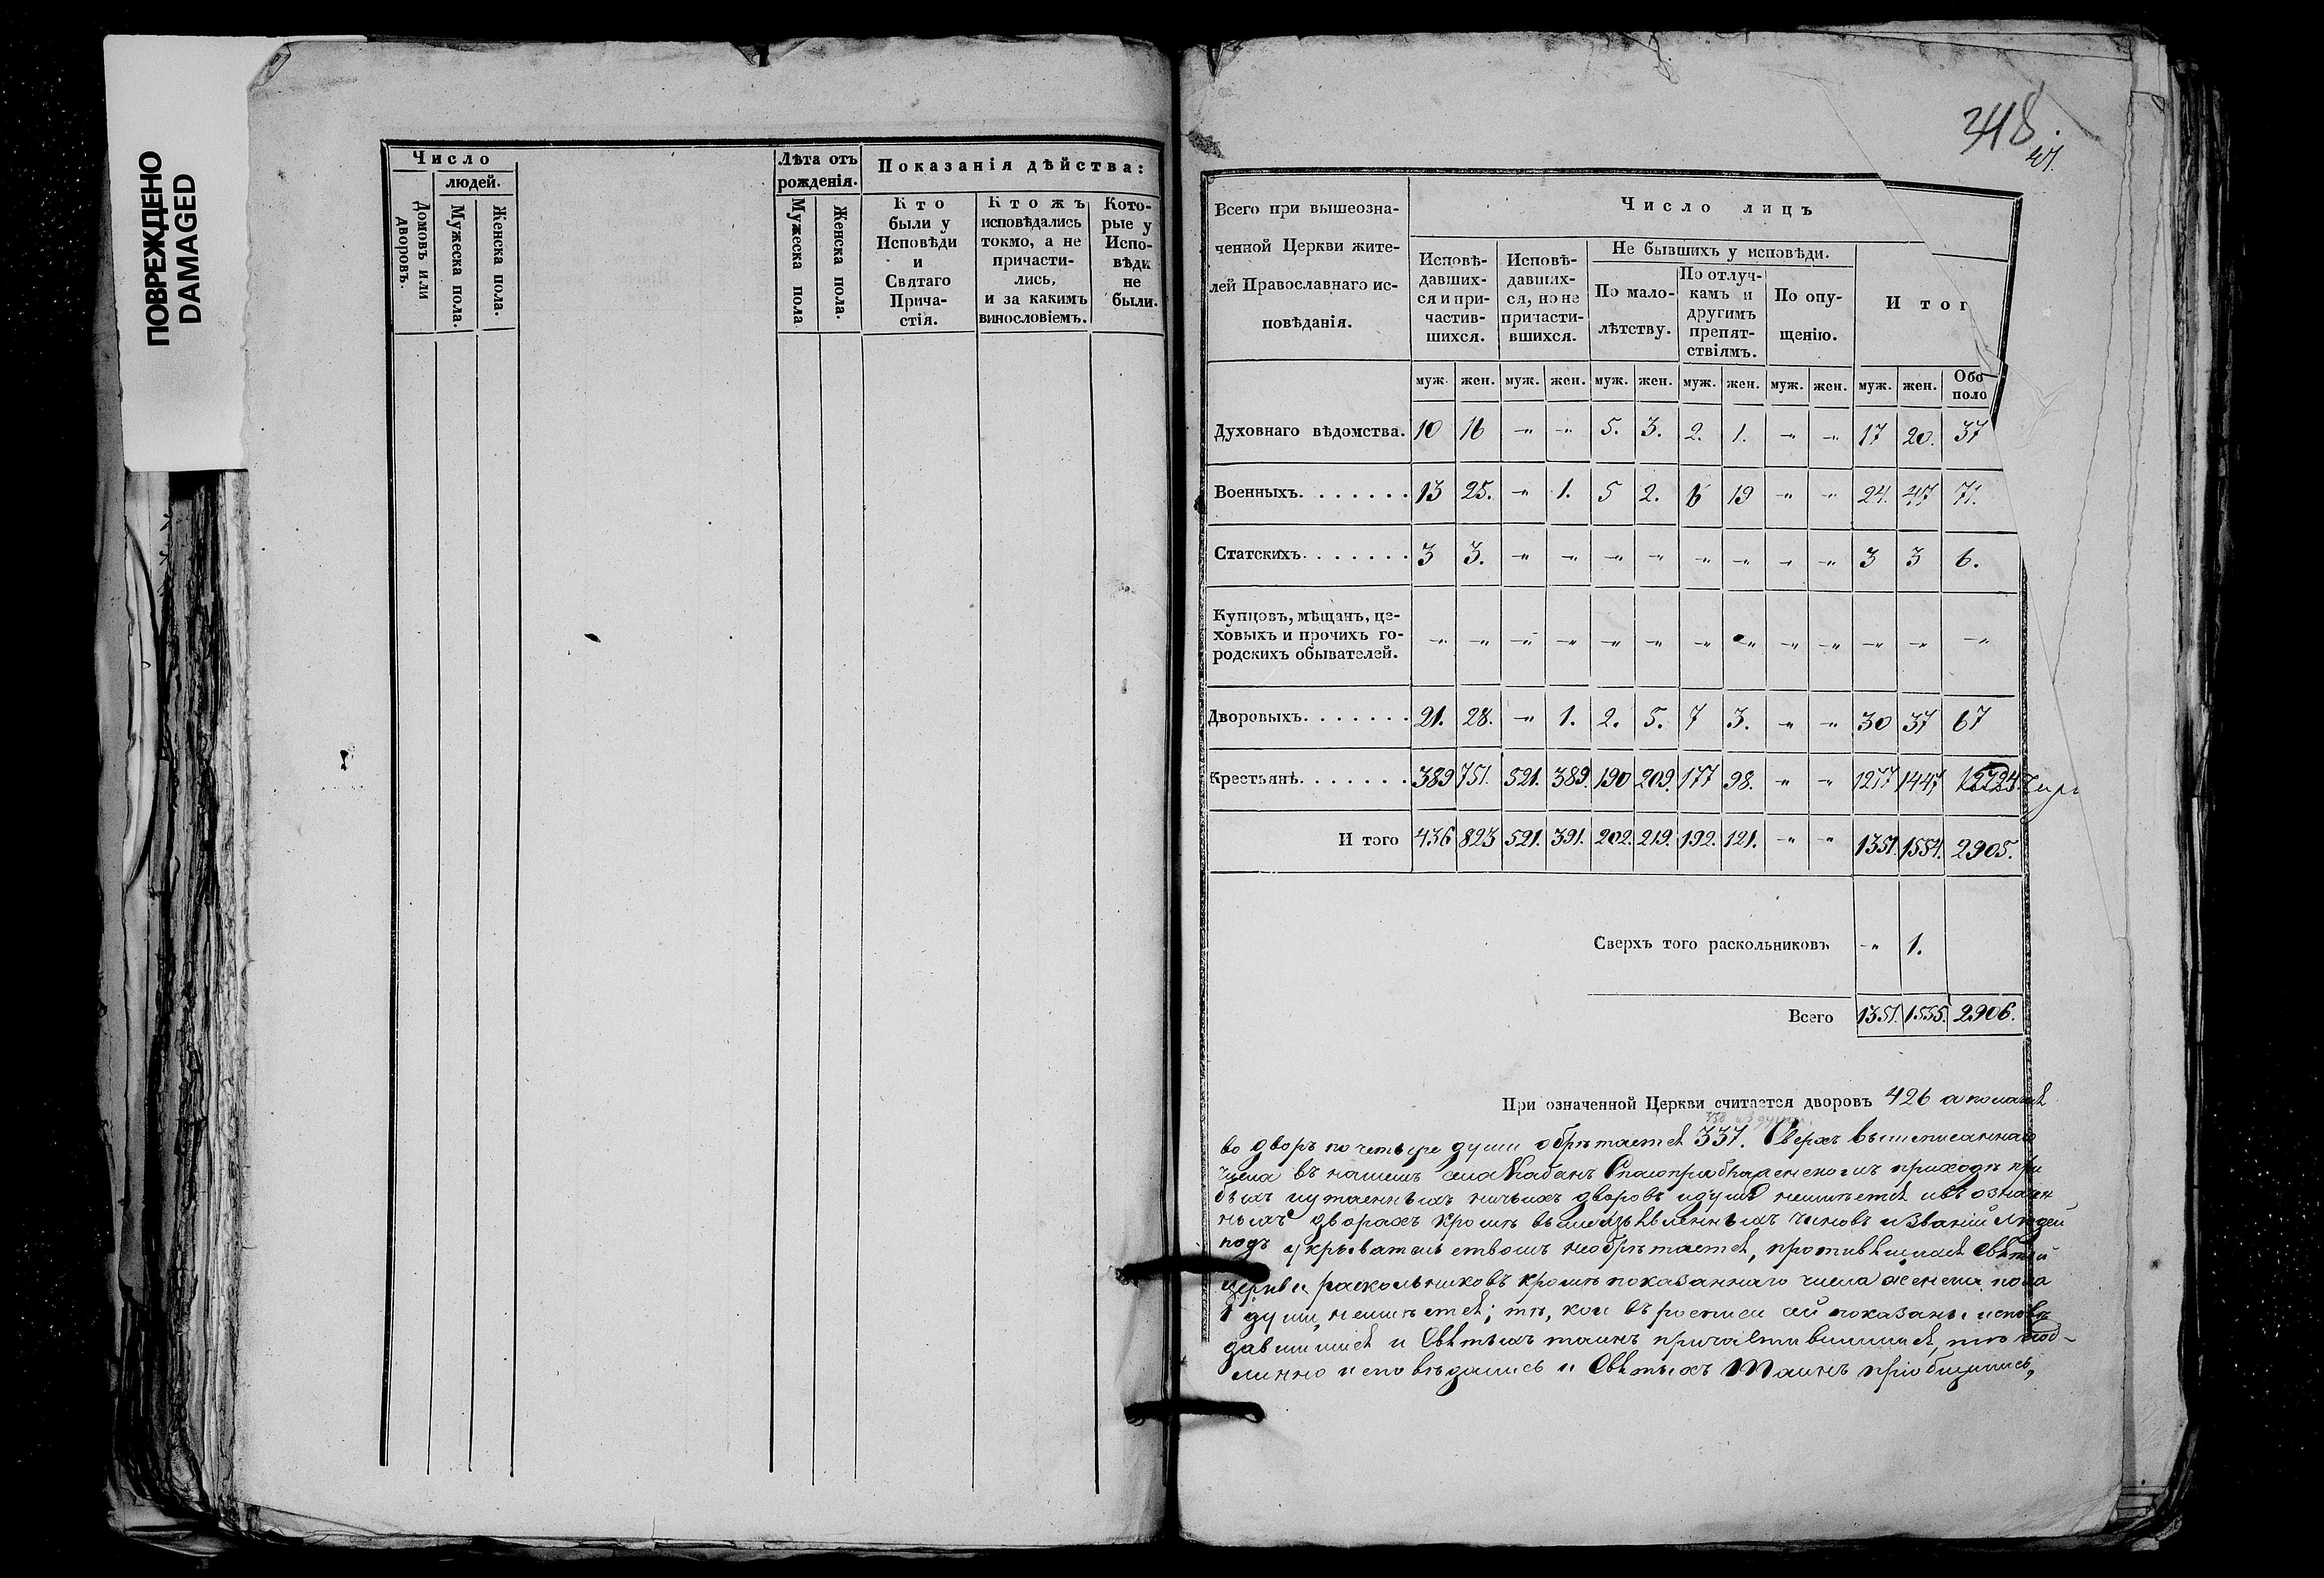 ПОВРЕЖДЕНО
DAMAGED
Число
людей.
Домовъ или дворовъ.
Мужеска пола.
Женска пола.
Лѣта отъ рожденія.
Мужеска пола
Женска пола.
Показанія дѣйства:
Кто были у Исповѣди и Святаго Прича-стія.
Кто жъ исповѣдались токмо, а не причасти-лись, и за какимъ винословіемъ.
Кото-рые у Испо-вѣди не были.
348.
Всего при вышеозна-
ченной Церкви жите-
лей Православнаго ис-
повѣданія.
Число лицъ
Исповѣ-давших-ся и при-частив-шихся.
Исповѣ-давших-ся, но не причасти-вшихся.
Не бывшихъ у исповѣди.
По мало-лѣтству.
По отлуч-камъ и другимъ препят-ствіямъ.
По опу-щенію.
И тог
муж. жен. муж. жен. муж. жен. муж. жен. муж. жен. муж. жен. Обо поло
Духовнаго вѣдомства. 10 16 -„ -„ 5. 3. 2. 1. -„ -„ 17 20. 37
Военныхъ. 13 25. -„ 1. 5 2. 6 19 -„ -„ 24. 47 71.
Статскихъ. 3 3. -„ -„ -„ -„ -„ -„ -„ -„ 3 3 6.
Купцовъ, мѣщанъ, це-
ховыхъ и прочихъ го-
родскихъ обывателей. -„ -„ -„ -„ -„ -„ -„ -„ -„ -„ -„ -„ -„
Дворовыхъ. 21. 28. -„ 1. 2. 5. 7 3. -„ -„ 30 37 67
Крестьянъ. 389 751. 521. 389. 190 209. 177 98. -„ -„ 1277 1447 2724.
И того 436 823 521. 391. 202. 219. 192. 121. -„ -„ 1351. 1554. 2905.
Сверхъ того раскольниковъ -„ 1.
Всего 1351. 1555. 2906.
При означенной Церкви считается дворовъ 426 а полагая
во дворъ по четыре души обрѣтается 337. Сверхъ вышеписаннаго
числа въ нашемъ села Кабанъ Спасопреображенскомъ приходѣ при
быхъ иутаенныхъ ничьихъ дворовъ идушъ неимѣется ивъ означен
ныхъ дворахъ кромѣ вышеизъявленныхъ чиновъ изваній людей
подъ укрывательствомъ необрѣтается, противящихся Святой
церкви раскольниковъ кромѣ показаннаго числа женска пола
1 души, неимѣется; тѣ, кои въ росписи сей показаны исповѣ
давшимися и Святыхъ таинъ причастившимися, тѣ под-
линно исповѣдались и Святыхъ Таинъ пріобщились,